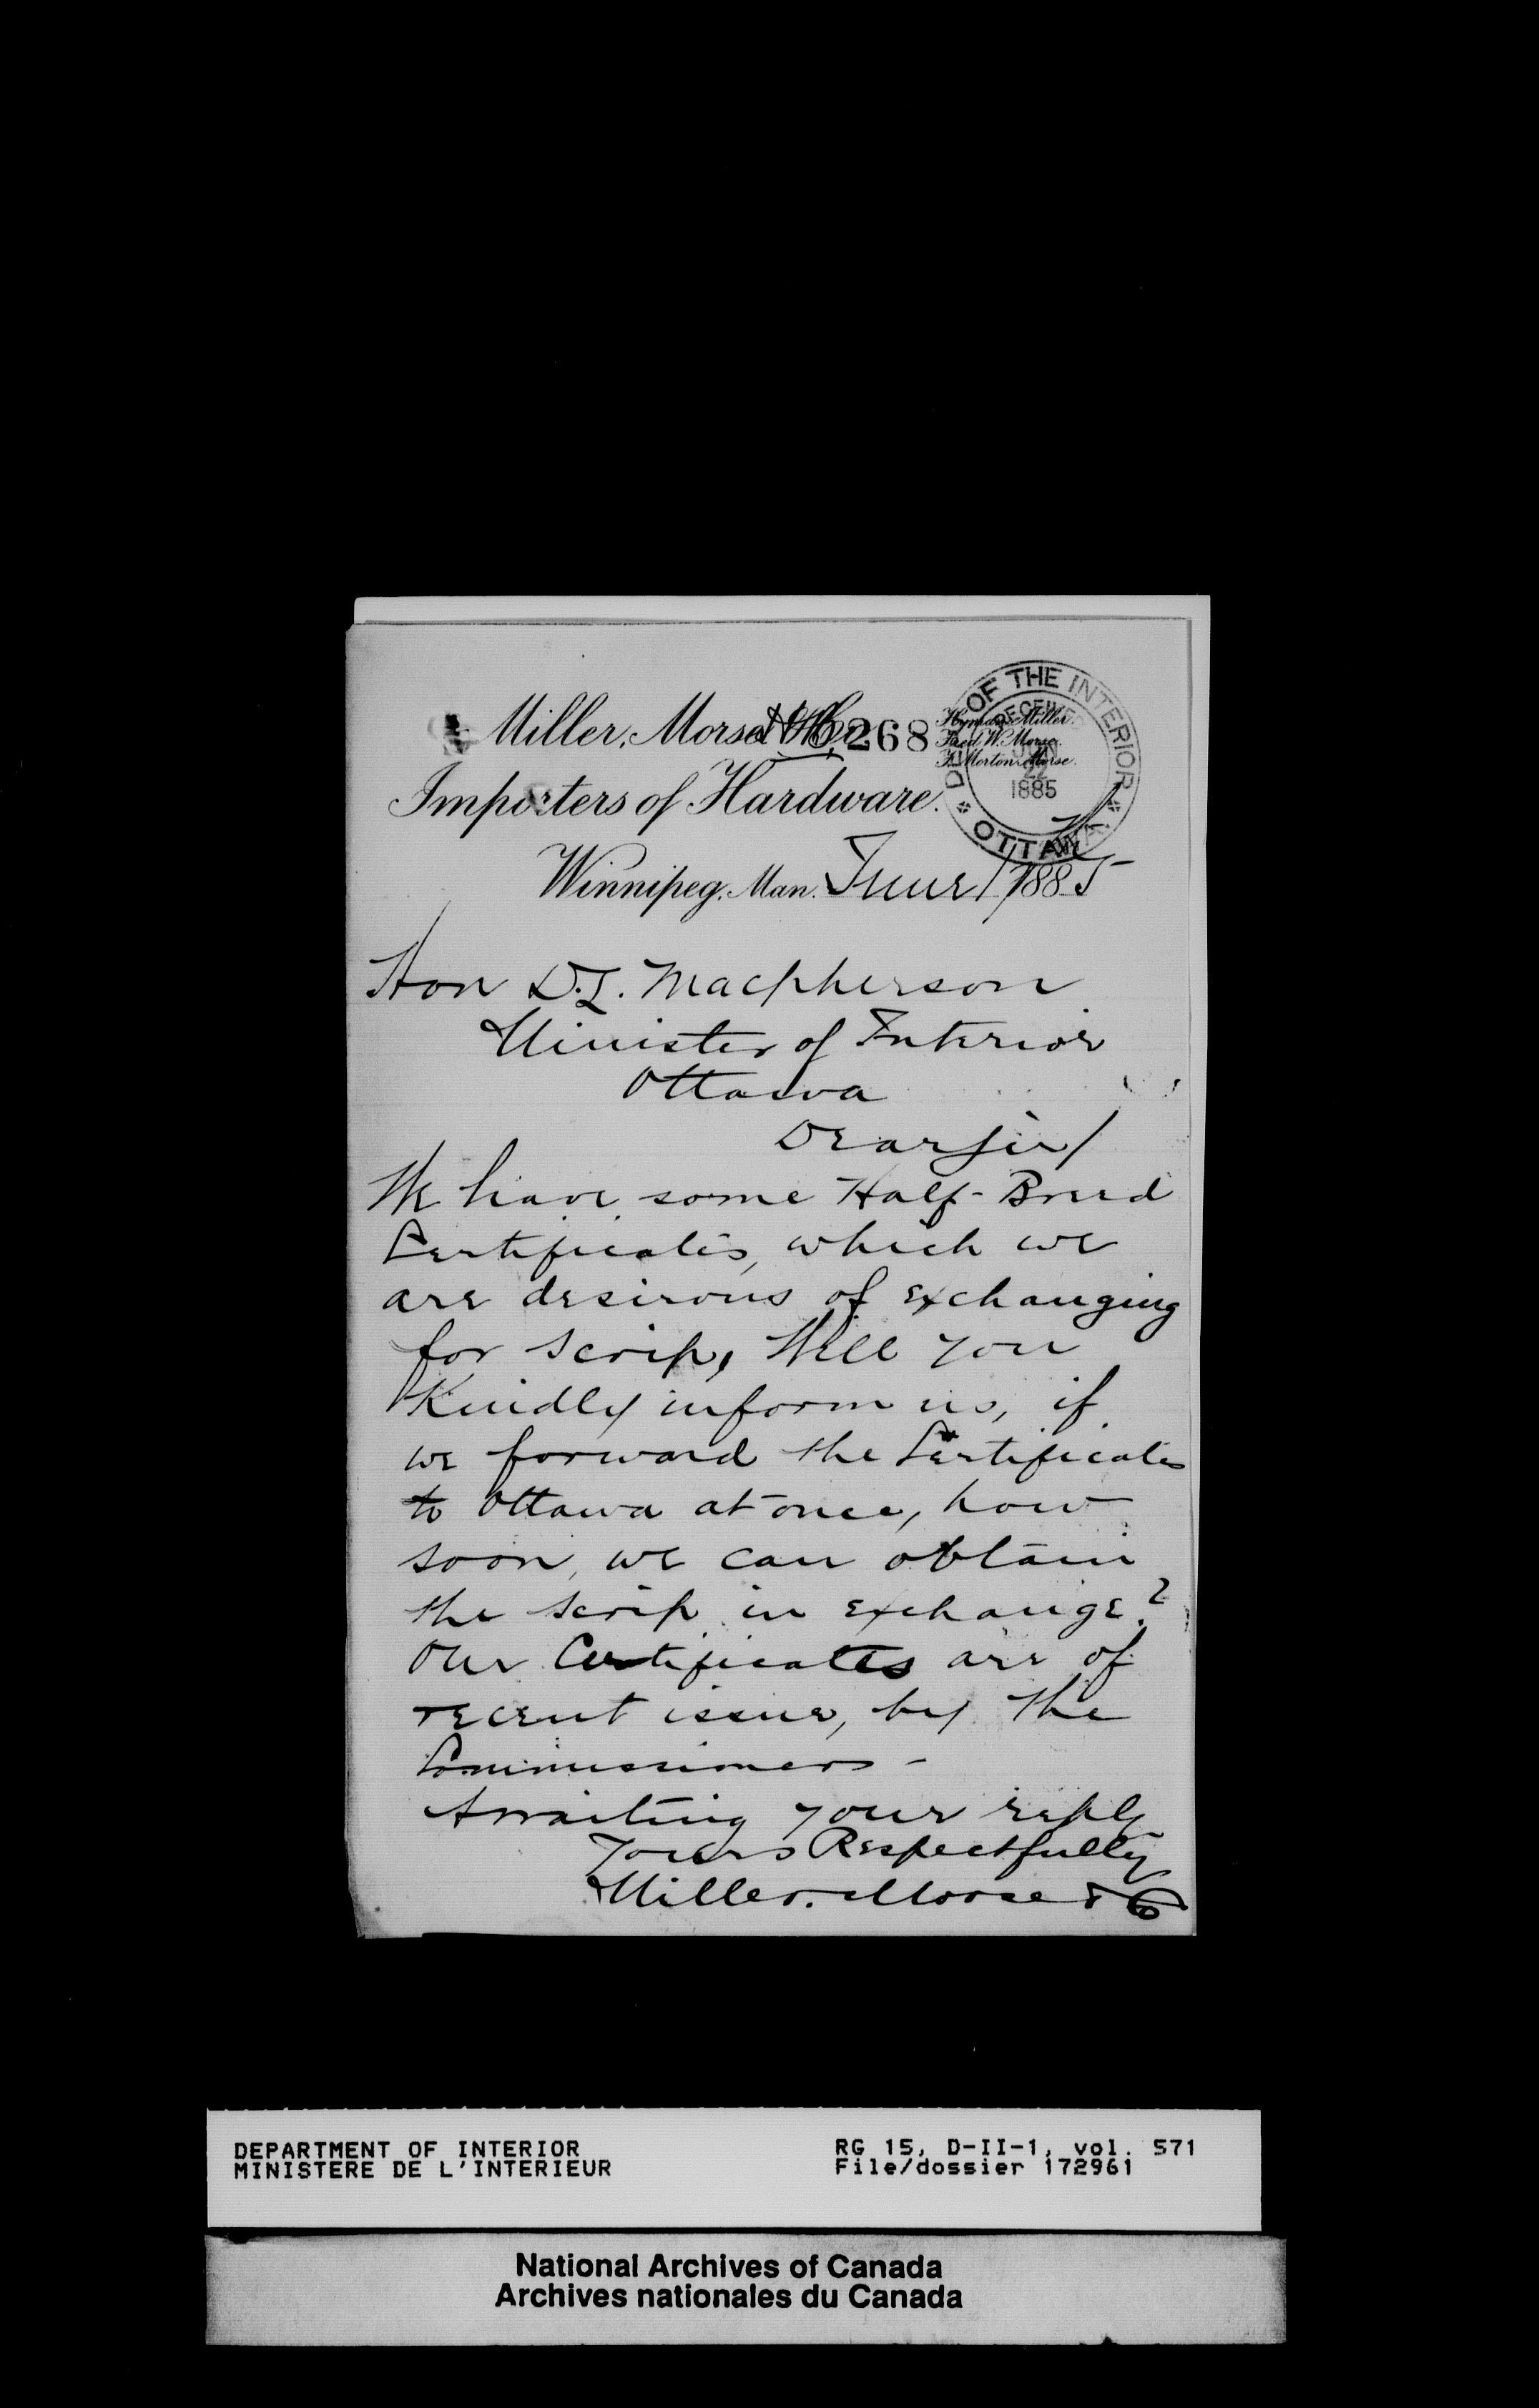 Miller, Morse & Co.
6268
Hyman Miller.
Fred W. Morse.
F. Morton Morse.
DEPT OF THE INTERIOR
RECEIVED
JUN
22
1885
OTTAWA
Importers of Hardware.
Winnipeg, Man. June 17 1885
Hon D.L. Macpherson
Minister of Interior
Ottawa
Dear Sir/
We have some Half-Breed
Certificates, which we
are desirous of exchanging
for scrip, Will you
Kindly inform us, if
we forward the Certificates
to Ottawa at once, how
soon, we can obtain
the scrip in exchange?
Our Certificates are of
recent issue, by the
Commissioners -
Awaiting your reply
Yours Respectfully
Miller. Morse & Co
DEPARTMENT OF INTERIOR
MINISTERE DE L'INTERIEUR
RG 15, D-II-1, vol. 571
File/dossier 172961
National Archives of Canada
Archives nationales du Canada